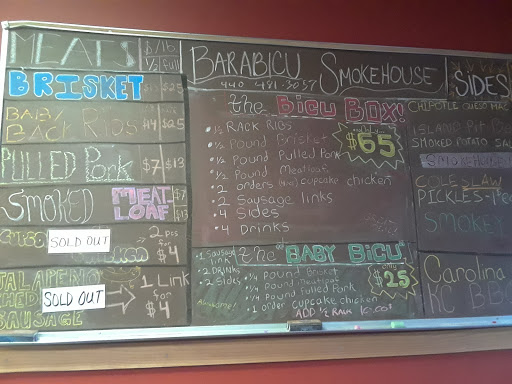 MEATS
$/lb
1/2 full
BRISKET
$25
BABY
BACK RIBS
$14 $25
PULLED Pork
$7 $13
SMOKED MEAT-
LOAF
$7
$13
SOLD OUT
2 pcs
for
$4
JALAPENO
CHED
SAUSAGE
SOLD OUT
1 Link
for
$4
BARABICU SMOKEHOUSE
440-481-3057
the BICU BOX!
• 1/2 RACK RIBS
• 1/2 Pound Brisket
• 1/2 Pound Pulled Pork
• 1/2 Pound Meatloaf
• 2 orders cupcake chicken
• 2 Sausage links
• 4 Sides
• 4 DRINKS
$65
the "BABY BICU"
• 1 Sausage
link
• 2 DRINKS
• 2 Sides
Awesome!
• 1/4 Pound Brisket
• 1/4 Pound Meatloaf
• 1/4 Pound Pulled Pork
• 1 order cupcake chicken
ADD 1/2 RACK
$25
SIDES
CHIPOTLE QUESO MAC
ISLAND
SMOKED POTATO SAL
COLE SLAW
PICKLES
SMOKEY
Carolina
KC BB